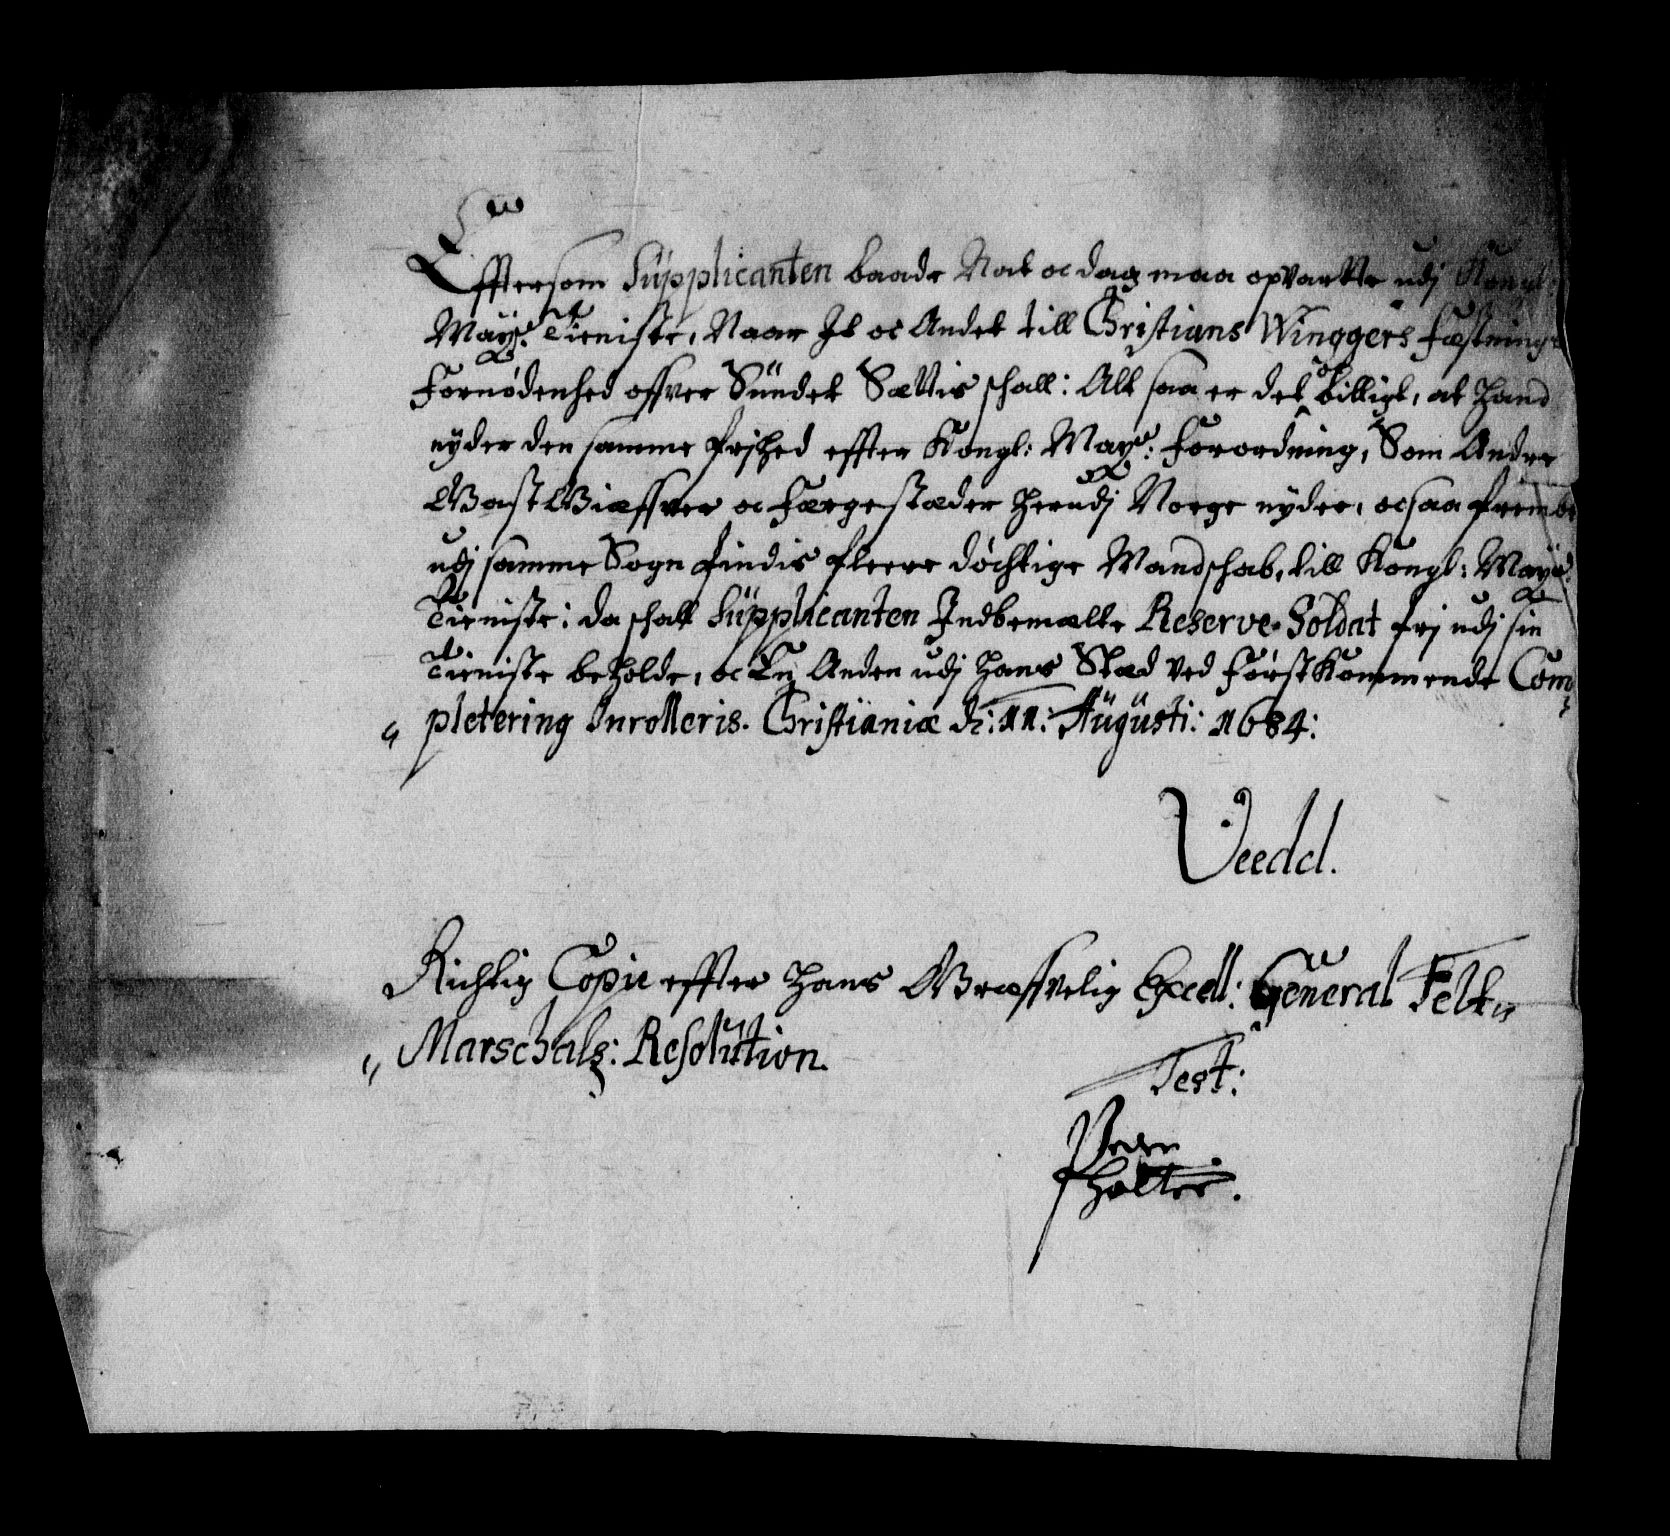 Efftersom Süpplicanten baade Nat oc dag maa opvartte udj Kongl:
Mayts: Tieniste, Naar It oc Andet till Christians Winggers Fæstnings
Fornødenhed offver Sündet Sættis schall: Alt saa er det oc billigt, at hand
nyder den samme frjhed effter Kongl: Mayts: Forordning, Som Andre
Giæstgiffver oc Færgestæder herudj Norge nyder, ocsaa
udj samme Sogn findis fleere döchtige Mandschab, till Kongl: Mayts:
Tieniste: da schall Süpplicanten Indbemælte Reserve-Soldat frj udj sin
Tieniste beholde, oc En Anden udj hans Stæd ved FørstKommende Com
„ pletering Inrolleris. Christianiæ d: 11: Augüsti: 1684:
Veedel.
Richtig Copie effter hans Græffvelig Excell: General Felt„
„ Marschals: Resolütion.
Test:
Peder
Holter.